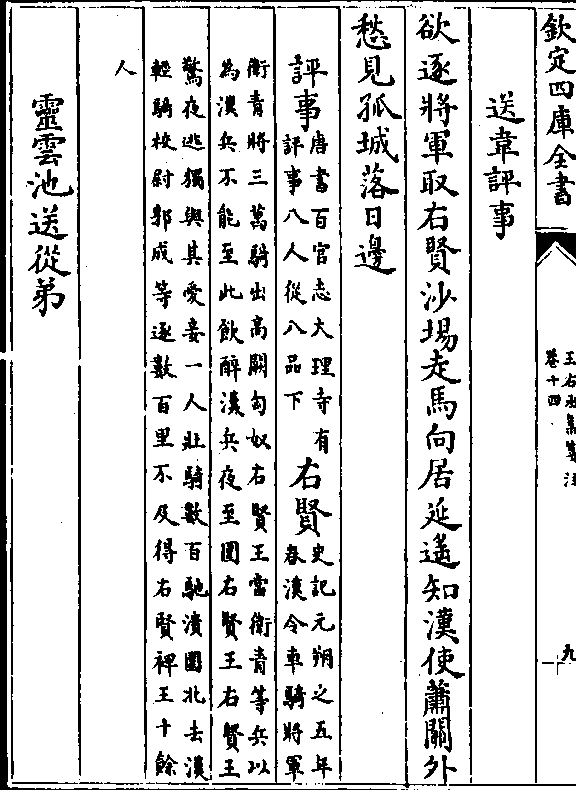 欽定四庫全書
王右丞集箋注
卷十四
九
送韋評事
欲逐將軍取右賢沙場走馬向居延遙知漢使蕭關外
愁見孤城落日邊
評事
唐書百官志大理寺有
評事八人從八品下
右賢
史記元朔之五年
春漢令車騎將軍
衛青將三萬騎出高闕匈奴右賢王當衛青等兵以
為漢兵不能至此飲醉漢兵夜至圍右賢王右賢王
驚夜逃獨與其愛妾一人壯騎數百馳潰圍北去漢
輕騎校尉郭成等逐數百里不及得右賢裨王十餘
人
靈雲池送從弟